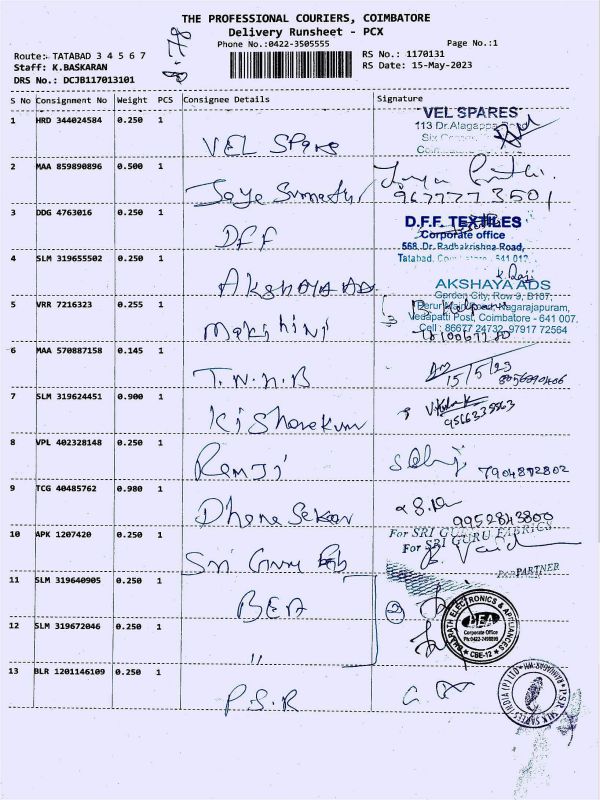 THE PROFESSIONAL COURIERS, COIMBATORE
Delivery Runsheet - PCX
Phone No.:0422-3505555
Page No.:1
8-78
Route: TATABAD 3 4 5 6 7
Staff: K.BASKARAN
DRS No.: DCJB117013101
RS No.: 1170131
RS Date: 15-May-2023
S No Consignment No Weight PCS Consignee Details Signature
1 HRD 344024584 0.250 1 VEL Spare
VEL SPARES
113 Dr.Alagappa Road
2 MAA 859890896 0.500 1 Jaye
967777 3501
3 DDG 4763016 0.250 1 DFF
D.F.F. TEXTILES
Corporate office
568, Dr. Radhakrishna Road,
Tatabad, 641 012
4 SLM 319655502 0.250 1 AKSHAYA AD
K. Raji
AKSHAYA ADS
Garden City, Row 9, B107,
Nagarajapuram,
Vedapatti Post, Coimbatore - 641 007.
Cell : 86677 24732, 97917 72564
5 VRR 7216323 0.255 1 Makihini
6 MAA 570887158 0.145 1 T.N.H.B
15/5/23
7 SLM 319624451 0.900 1 Kishorekum
9566335563
8 VPL 402328148 0.250 1 Remji
7904872802
9 TCG 40485762 0.980 1 Dhene Sekar
9952843800
10 APK 1207420 0.250 1 Sri Guru Fab
For SRI GURU FABRICS
For SRI
PARTNER
11 SLM 319640905 0.250 1 BEA
2
12 SLM 319672046 0.250 1 "
BHARATH ELECTRONICS & APPLIANCES
BEA
Corporate Office
Ph:0422-2499899
CBE-12
13 BLR 1201146109 0.250 1 P.S.R
P.S.R. SILK SAREES INDIA (P) LTD